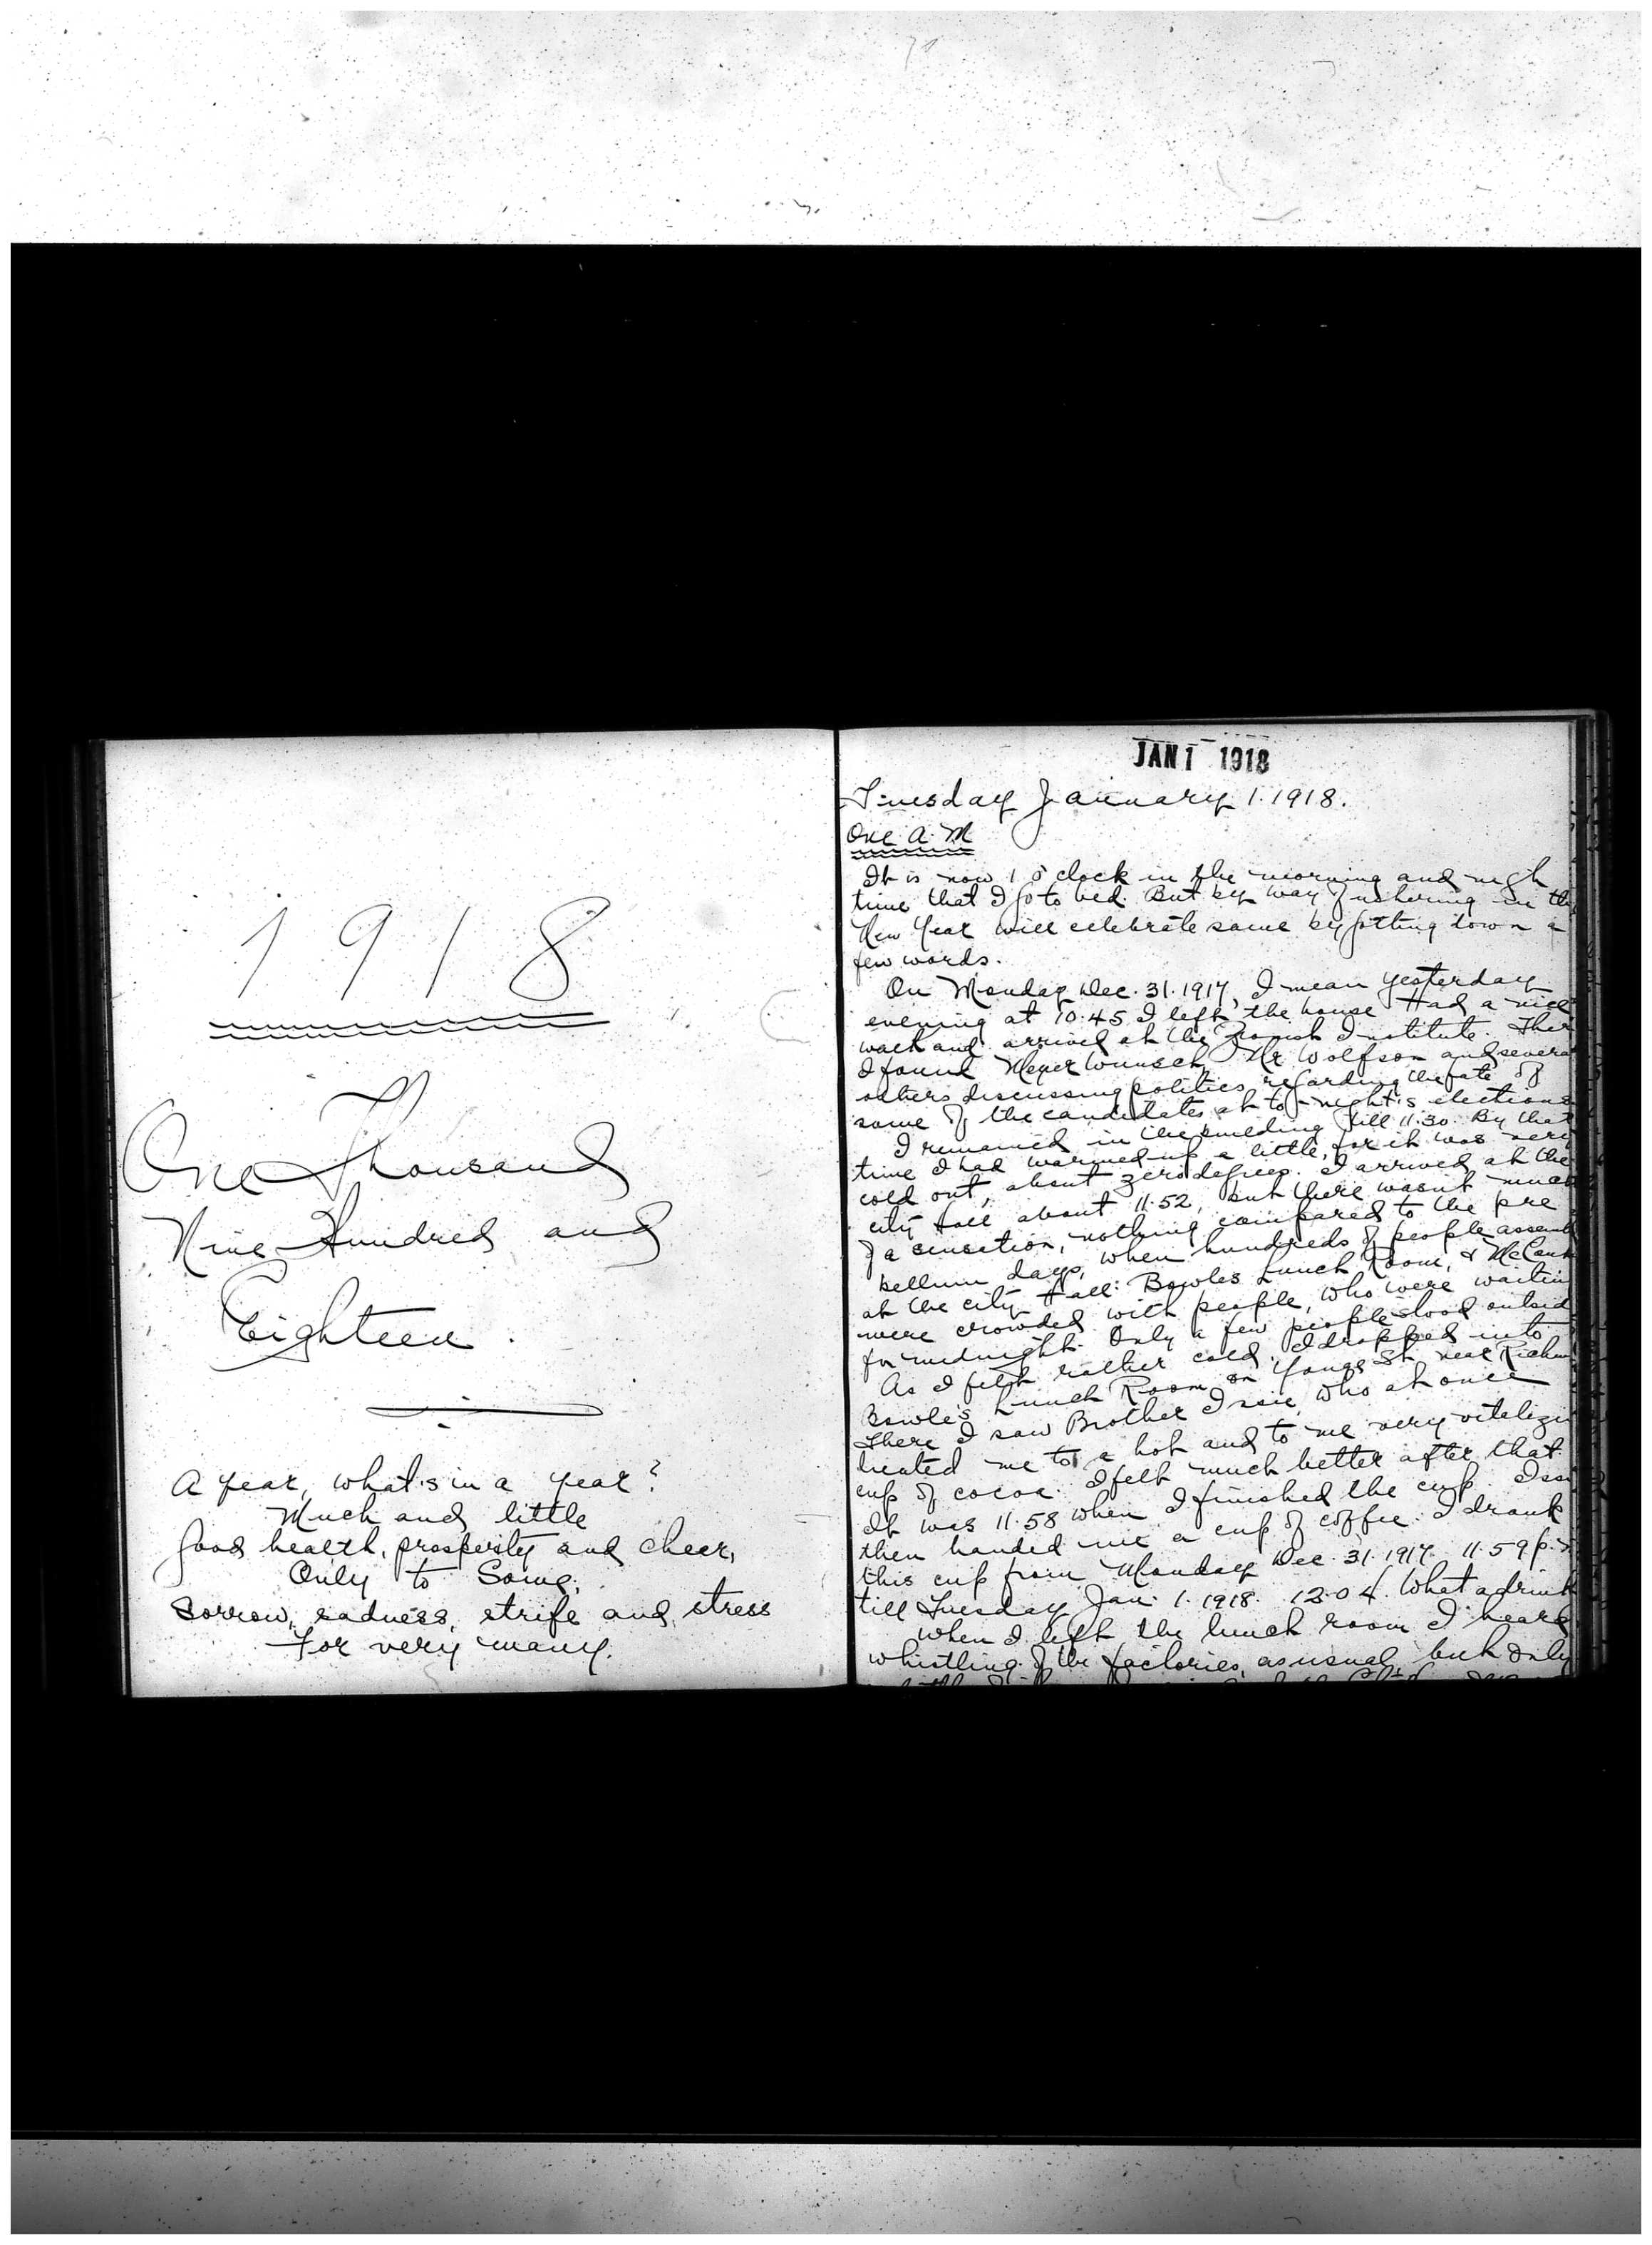 1918
One Thousand
Nine Hundred and
Eighteen.
A year, what's in a year?
Much and little
Good health, prosperity and cheer,
Only to Some;
Sorrow, sadness, strife and stress
For very many.
JAN 1 1918
Tuesday January 1. 1918.
One A. M
It is now 1 o'clock in the morning and nigh
time that I go to bed. But by way of ushering in the
New Year will celebrate same by jotting down a
few words.
On Monday Dec. 31. 1917, I mean yesterday
evening at 10.45 I left the house Had a nice
walk and arrived at the Zionist Institute. Ther
I found Meyer Wunsch, Mr Wolfson and severa
others discussing politics regarding the fate of
some of the candidates at to-night's elections
I remained in the building till 11.30. By that
time I had warmed up a little, for it was very
cold out, about zero degrees. I arrived at the
city Hall about 11.52, but there wasn't much
of a sensation, nothing compared to the pre
bellum days, when hundreds of people assemb
at the city Hall: Bowles Lunch Room, & McConk
were crowded with people, who were waitin
for midnight. Only a few people stood outsid
As I felt rather cold, I dropped into
Bowle's Lunch Room on Yonge St. near Richm
There I saw Brother Issie, who at once
treated me to a hot and to me very vitalizin
cup of cocoa. I felt much better after that.
It was 11.58 when I finished the cup. Issi
then handed me a cup of coffee. I drank
this cup from Monday Dec. 31. 1917 11.59 p.m
till Tuesday Jan. 1. 1918. 12.04. What a drink
When I left the lunch room I heard
whistling of the factories, as usual, but only